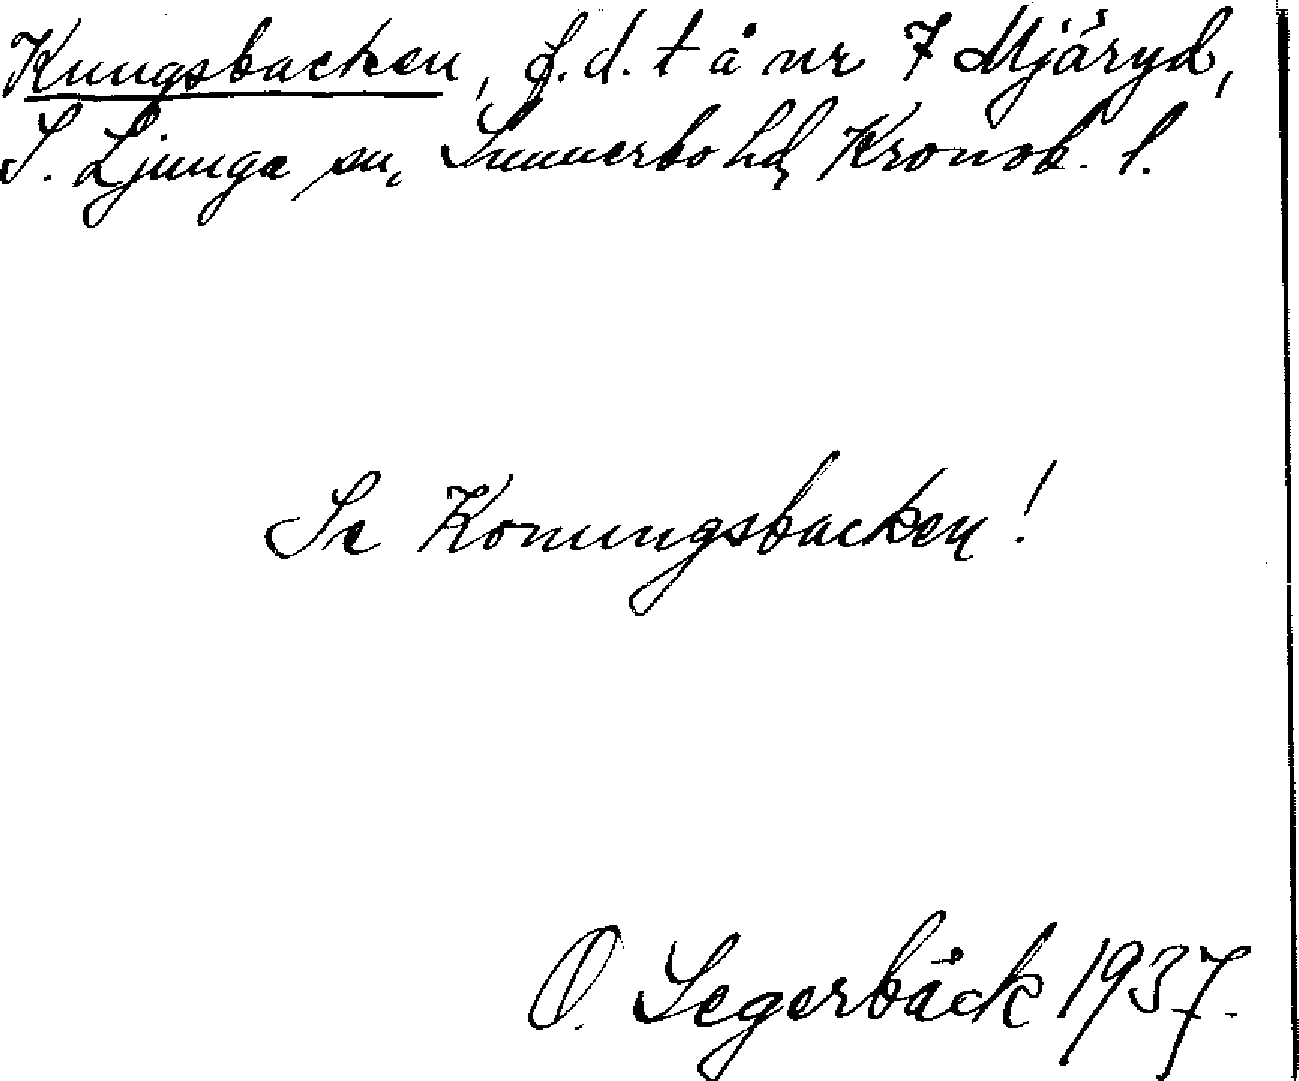 Kungsbacken, f.d. t å nr 7 Mjäryd,
S. Ljunga sn, Sunnerbo hd, Kronob. l.
Se Konungsbacken!
O. Segerbäck 1937.